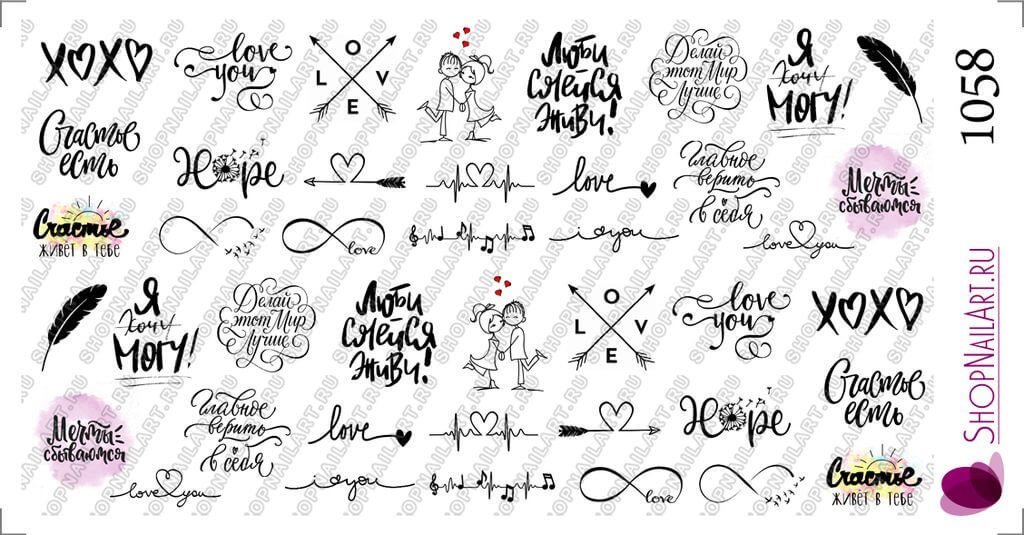 XOXO
love
you
L O V E
Люби
смейся
живи!
Делай
этот Мир
Лучше
Я
Хочу
Могу!
1058
Счастье
есть
Hope
love
Главное
верить
в себя
Мечты
сбываются
Счастье
живёт в тебе
love
i you
love you
SHOPNAILART.RU
Я
Хочу
Могу!
Делай
этот Мир
Лучше
Люби
смейся
живи!
L O V E
love
you
XOXO
Счастье
есть
Мечты
сбываются
Главное
верить
в себя
love
Hope
love you
i you
love
Счастье
живёт в тебе